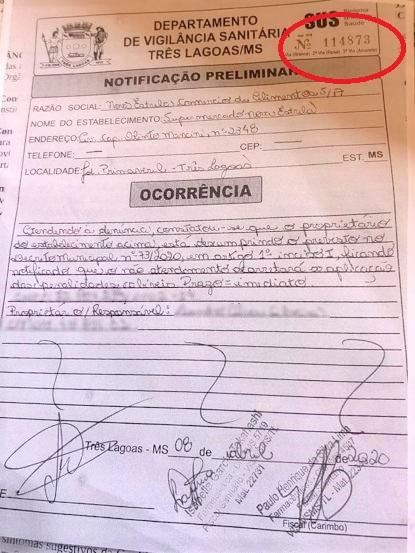 DEPARTAMENTO
DE VIGILÂNCIA SANITÁRIA
TRÊS LAGOAS/MS
SUS Sistema
Saúde
Nº 114873
NOTIFICAÇÃO PRELIMINAR
RAZÃO SOCIAL: Nova Estrela Comércio de Alimentos S/A
NOME DO ESTABELECIMENTO: Supermercado Nova Estrela
ENDEREÇO: Av. Cap. Olinto Mancini, nº 2348
TELEFONE: CEP:
LOCALIDADE: Jd. Primaveril - Três Lagoas EST. MS
OCORRÊNCIA
Atendendo à denuncia, constatou-se que o proprietário
do estabelecimento acima, está descumprindo o previsto no
Decreto Municipal nº 73/2020, em artigo 1º inciso I, ficando
notificado que o não atendimento acarretará as aplicação
das penalidades cabíveis Prazo = imediato
Proprietário/Responsável:
Três Lagoas - MS 08 de abril de 2020
Paulo Henrique
Fiscal (Carimbo)
sintomas sugestivos de